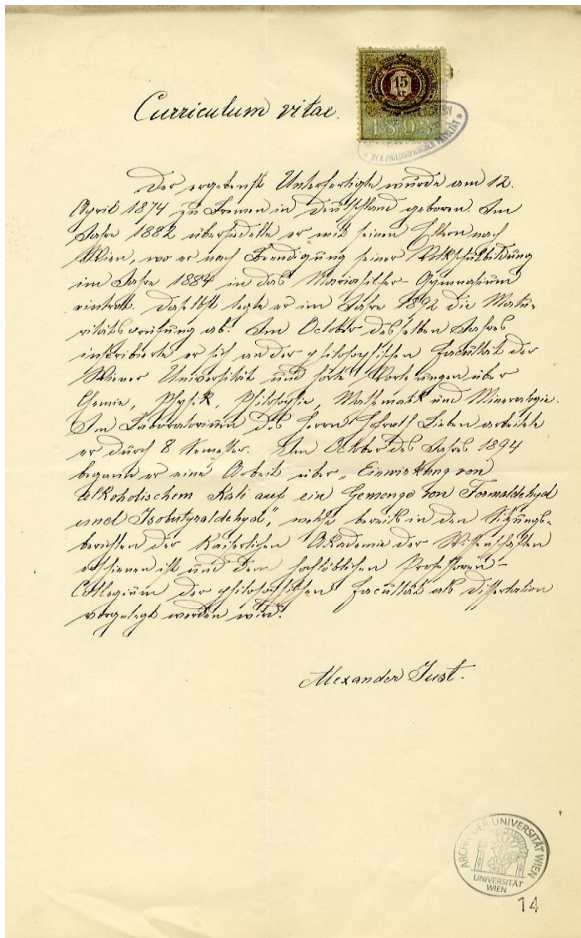 15
kr
1893
DER PHILOSOPHISCHEN FACULTÄT
Curriculum vitae.
Der ergebenst Unterfertigte wurde am 12.
April 1874 zu Bremen in Deutschland geboren. Im
Jahre 1882 übersiedelte er mit seinen Eltern nach
Wien, wo er nach Beendigung seiner Volksschulbildung
im Jahre 1884 in das Mariahilfer-Gymnasium
eintrat. Daselbst legte er im Jahre 1892 die Matu-
ritätsprüfung ab. Im October desselben Jahres
inscribierte er sich an der philosophischen Facultät der
Wiener Universität und hörte Vorlesungen über
Chemie, Physik, Philosophie, Mathematik und Mineralogie.
Im Laboratorium des Herrn Hofrath Lieben arbeitete
er durch 8 Semester. Im October des Jahres 1894
begann er eine Arbeit über „Einwirkung von
alkoholischem Kali auf ein Gemenge von Formaldehyd
und Isobutyraldehyd", welche bereits in den Sitzungs-
berichten der Kaiserlichen Akademie der Wissenschaften
erschienen ist und dem hochlöblichen Professoren-
Collegium der philosophischen Facultät als Dissertation
vorgelegt werden wird.
Alexander Just.
ARCHIV DER UNIVERSITÄT WIEN
UNIVERSITÄT
WIEN
14